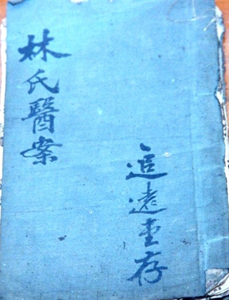 林氏醫案
追遠堂存